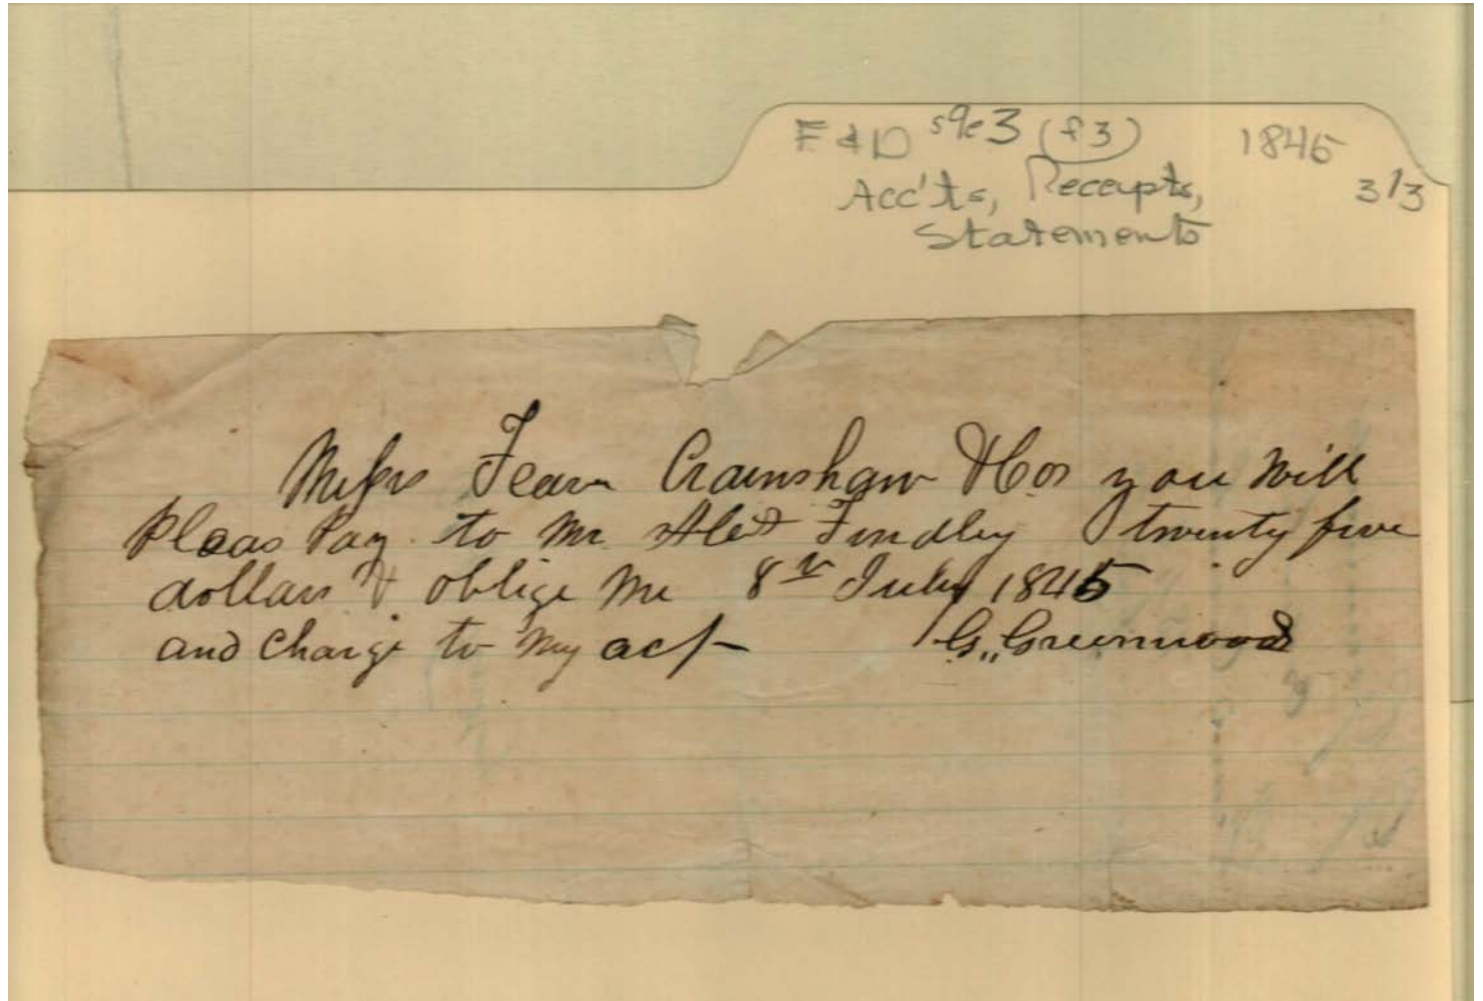 F & D s9e3 (f3) 1845
3/3
Acc'ts, Receipts,
Statements
Messrs Fearn Crainshaw & Co you will
Pleas Pay to Mr Alex Findley twenty five
dollars & oblige me 8th July 1845
and Charge to my act G. Greenwood